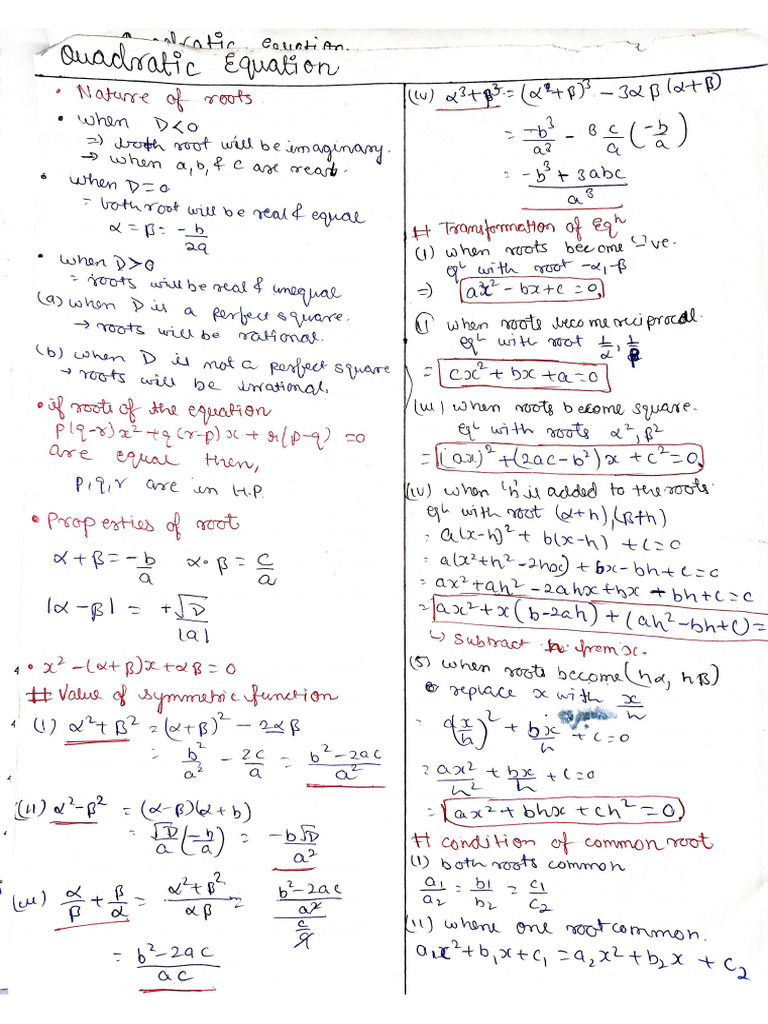 Quadratic Equation.
Quadratic Equation
• Nature of roots
• when D<0
⇒ both root will be imaginary.
→ when a,b,& c are real.
• when D=0
= both root will be real & equal
α = β = -b/2a
• when D>0
= roots will be real & unequal
(a) when D is a perfect square.
→ roots will be rational.
(b) when D is not a perfect square
→ roots will be irrational.
• if roots of the equation
p(q-r)x²+q(r-p)x+r(p-q)=0
are equal then,
p,q,r are in H.P.
• Properties of root
α+β = -b/a   α•β = c/a
|α-β| = +√D/|a|
• x²-(α+β)x+αβ=0
# Value of symmetric function
(i) α²+β² = (α+β)² - 2αβ
= b²/a² - 2c/a = b²-2ac/a²
(ii) α²-β² = (α-β)(α+b)
= √D/a (-b/a) = -b√D/a²
(iii) α/β + β/α = α²+β²/αβ = b²-2ac/a²/c/a
= b²-2ac/ac
(iv) α³+β³ = (α²+β)³ - 3αβ(α+β)
= -b³/a³ - 3 c/a (-b/a)
= -b³+3abc/a³
# Transformation of Eqⁿ
(1) when roots become -ve.
eqⁿ with root -α,-β
⇒ ax²-bx+c=0,
(ii) when roots become reciprocal.
eqⁿ with root 1/α, 1/β
= cx²+bx+a=0
(iii) when roots become square.
eqⁿ with roots α²,β²
= (ax)²+(2ac-b²)x+c²=0,
(iv) when 'h' is added to the roots.
eqⁿ with root (α+h),(β+h)
= a(x-h)²+b(x-h)+c=0
= a(x²+h²-2hx)+bx-bh+c=c
= ax²+ah²-2ahx+bx-bh+c=c
= ax²+x(b-2ah)+(ah²-bh+c)=
↳ subtract h from x.
(5) when roots become (hα, hβ)
replace x with x/h
= a(x/h)²+bx/h+c=0
= ax²/h²+bx/h+c=0
= ax²+bhx+ch²=0,
# condition of common root
(i) both roots common
a₁/a₂ = b₁/b₂ = c₁/c₂
(ii) where one root common.
a₁x²+b₁x+c₁=a₂x²+b₂x+c₂